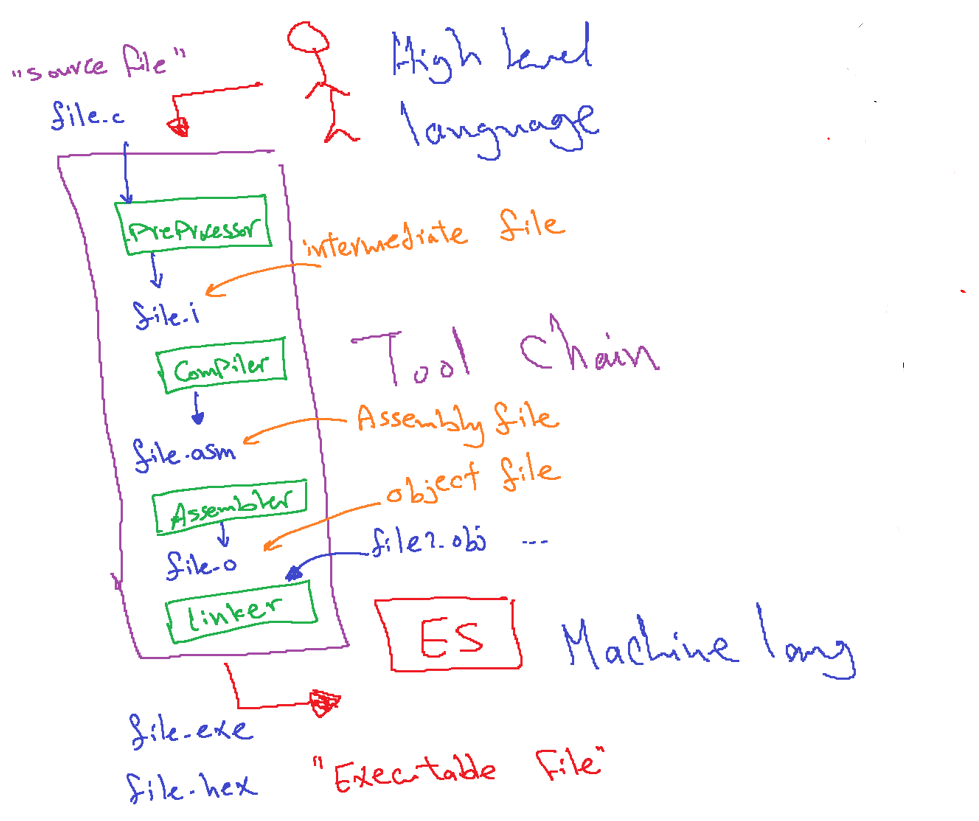 "source file"
High level
language
file.c
PreProcessor
intermediate file
file.i
Tool Chain
Compiler
Assembly file
file.asm
object file
Assembler
file2.obj ---
file.o
Linker
ES
Machine lang
file.exe
"Executable File"
file.hex